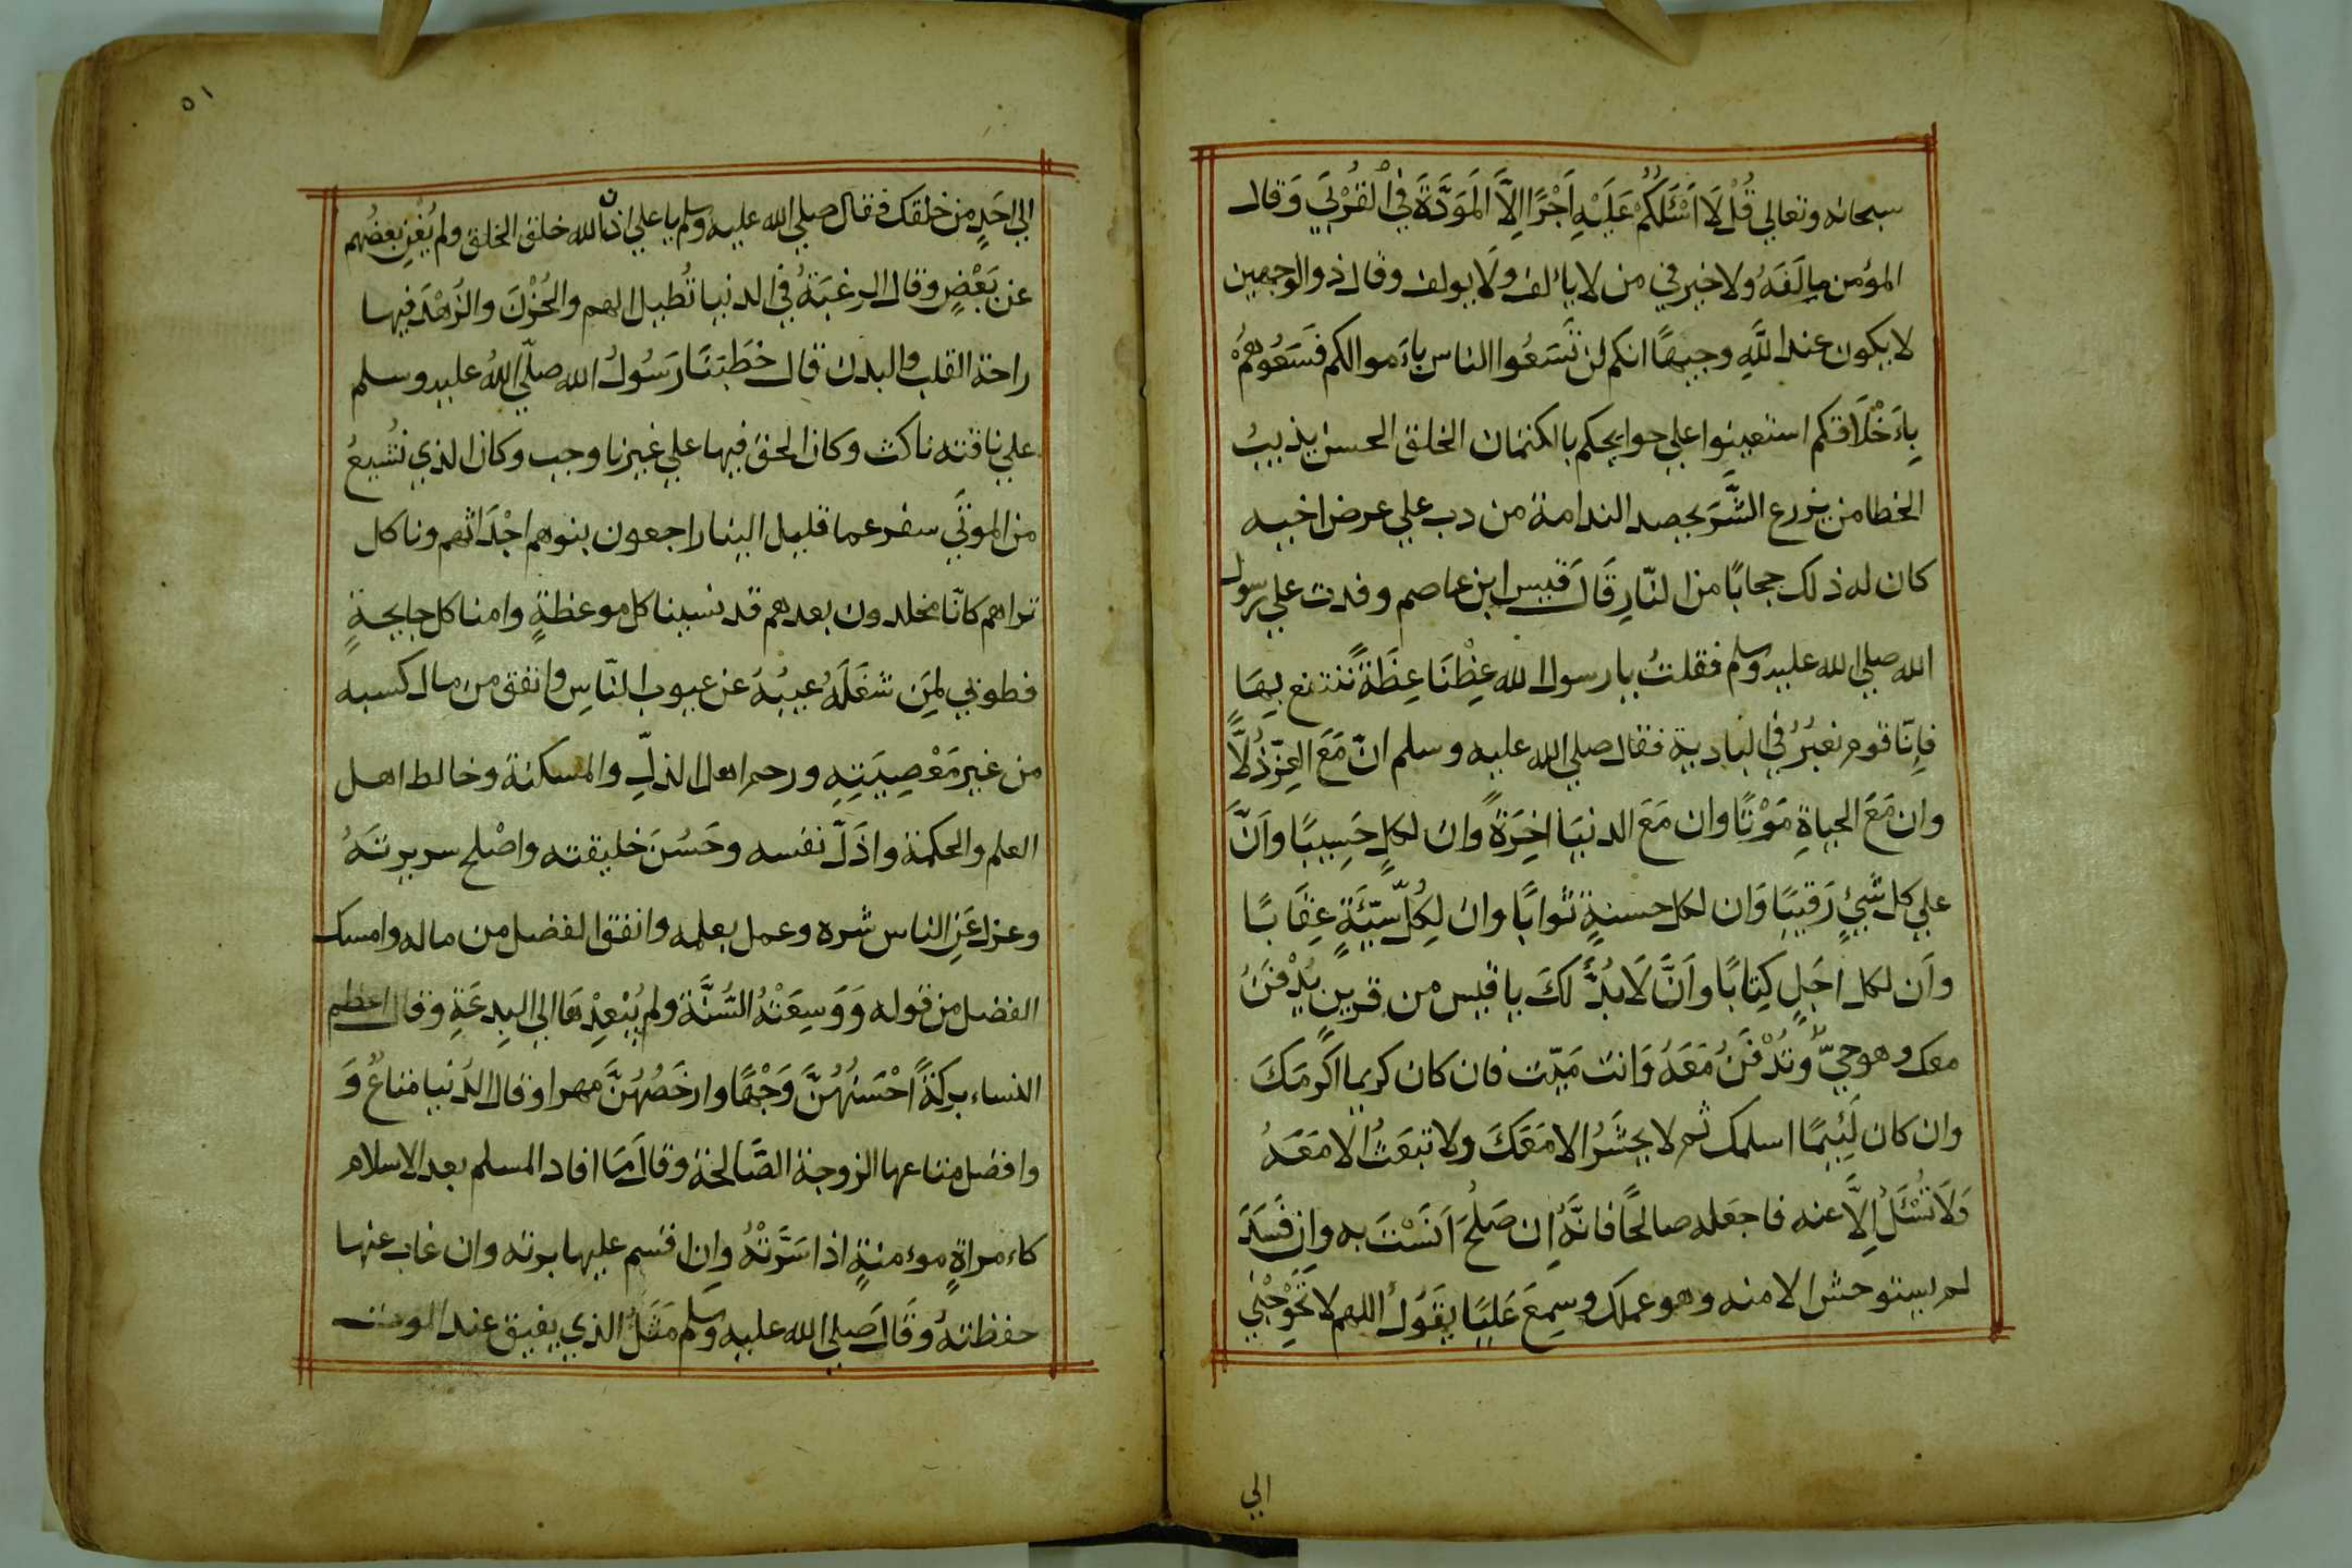 سبحانه وتعالي قُلْ لَا اَسْئَلُكُمْ عَلَيْهِ اَجْرًا اِلَّا الْمَوَدَّةَ فِي الْقُرْبَي وَقال
المؤمن مالَفَهُ ولا خير في من لا يائلف ولَا يولف وقال ذو الوجهين
لا يكون عند اللَّهِ وجيهًا انكم لن تَسَعُوا الناس باَموالكم فَسَعُوهُمْ
بِاَخْلَاقكم استعينوا علي حوايجكم بالكتمان الخلق الحسن يذيبُ
الخطا من يزرع الشَّرَ يحصد الندامة من دب علي عرض اخيه
كان له ذلك حجابًا من النّارِ قَالَ قيس ابن عاصم وفدت علي رسول
الله صلي الله عليه وسلم فقلتُ يا رسول الله عِظْنَا عِظَةً ننتفع بِهَا
فاِنّا قوم نعبُرُ في البادية فقال صلي الله عليه وسلم انّ مَعَ العِزّ ذُلًّا
وان مَعَ الحياةِ مَوْتًا وان مَعَ الدنيَا اخِرَةً وان لكلٍ حَسِيبًا واَنَّ
علي كل شَيْءٍ رَقيبًا وَان لكل حسنةٍ ثوابًا وان لِكُلِّ سَيِّئَةٍ عِقَابًا
واَن لكل اجَلٍ كِتابًا واَنَّ لَا بُدَّ لَكَ يا قيس من قرينٍ يُدْفَنُ
معك وهو حيٌّ وتُدْفَنُ مَعَهُ وَانت مَيّت فان كان كريما اكرمَكَ
وان كان لَئِيمًا اسلمك ثم لا يحشَرُ الا مَعَكَ ولا تبعَثُ الا مَعَهُ
وَلَا تُسْئَلُ اِلَّا عنه فاجعَله صالحًا فانَّهُ اِن صَلُحَ اَنَسْتَ به وانِ فَسَدَ
لم يستوحش الا منه وهو عملك وسمِعَ عَليًا يَقُولُ اللهم لا تُحْوِجْني
الي
٥١
الي احَدٍ من خلقك فقال صلي الله عليه وسلم يا علي اذن الله خلق الخلق ولم يُغْنِ بعضُهم
عن بَعْضٍ وقال الرغبَةُ في الدنيا تُطيل الهم والحُزْنَ والزُهْدَ فيها
راحة القلب والبدن قال خطَبَنَا رَسُولُ الله صلّي اللهُ عليه وسلم
علي ناقته ناكث وكان الحق فيها علي غيرنا وجب وكان الذي نُشيعُ
من الموتَي سفر عما قليل الينا راجعون بنوهم اجْدَاثهم وناكل
تراهم كانّا مخلدون بعدهم قد نسينا كل موعظةٍ وامنا كل جايحةٍ
فطوبي لِمَن شغَلَهُ عيبُهُ عن عيوب النّاسِ وانفق من مال كسبه
من غير مَعْصِيَتِهِ ورحم اهل الذلِّ والمسكنة وخالط اهل
العلم والحكمة واذَلَّ نفسه وحَسُنَ خليقته واصْلح سريرتَهُ
وعزل عَنِ الناس شره وعمل بعلمه وانفق الفضل من ماله وامسك
الفضل من قوله وَوَسِعَتْهُ السُّنَّة ولم يُبْعِدْهَا الي البِدعَةِ وقال اعظم
النساء بركةً احْسَنُهُنَّ وَجْهًا وارخَصُهُنَّ مهرا وقال الدُنيا متاعٌ وَ
وافضل متاعها الزوجة الصَّالحة وقال مَا افاد المسلم بعد الاسلام
كاءمراةٍ موءمنةٍ اذا سَرَّتْهُ وان اقسم عليها برته وان غاب عنها
حفظتهُ وقَالَ صلي الله عليه وسلم مَثَلُ الذي يفيق عند الموت